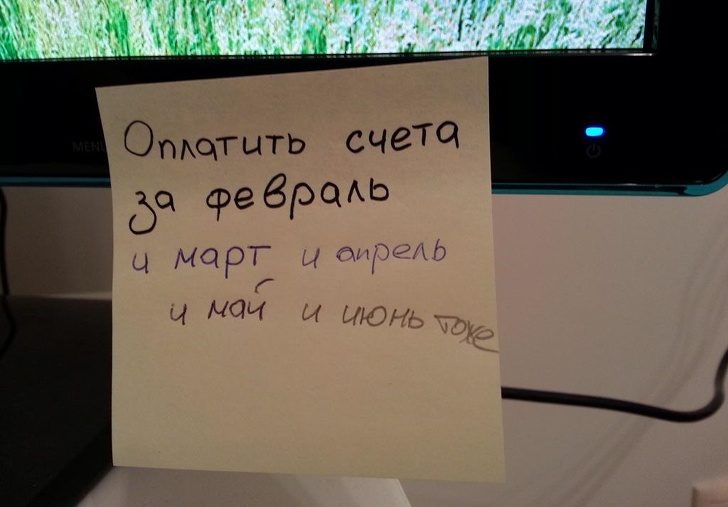 MENU
Оплатить счета
за февраль
и март и апрель
и май и июнь тоже